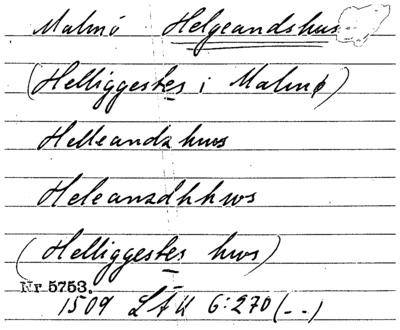 Malmö Helgeandshus
(Helliggestes i Malmø)
Helleandz hws
Heleanzdhhws
(Helliggestes hws)
Nr 5753.
1509 LÅU 6:270 (--)